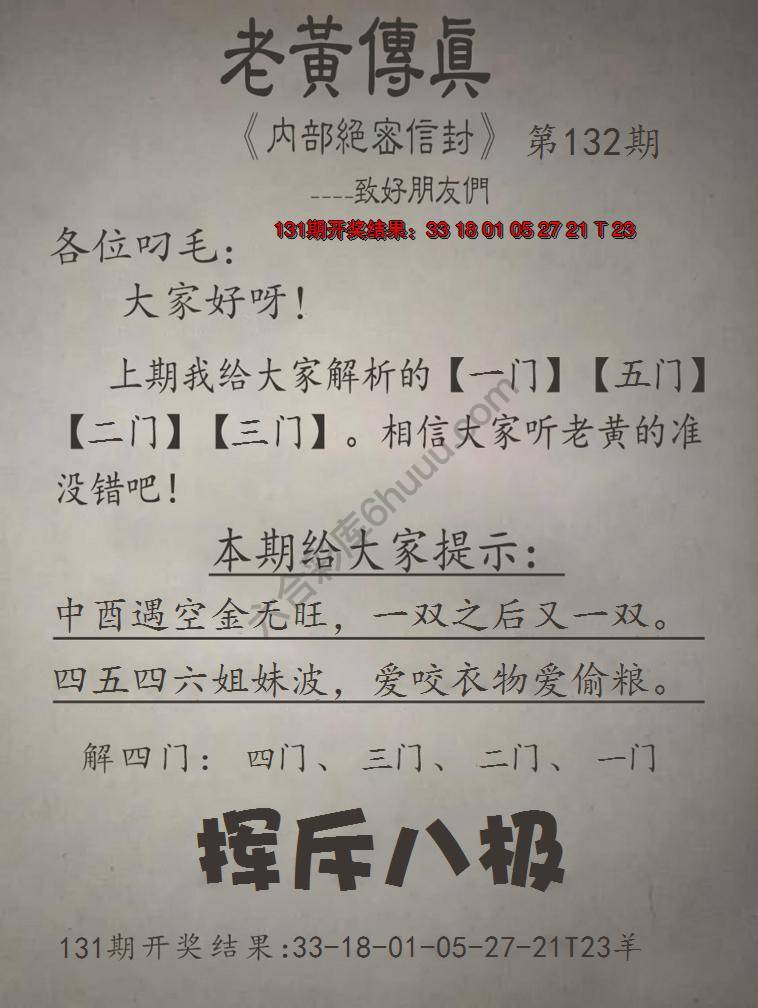 老黃傳眞
《内部絕密信封》 第132期
----致好朋友們
131期开奖结果：33 18 01 05 27 21 T 23
各位叼毛：
大家好呀！
上期我给大家解析的【一门】【五门】
【二门】【三门】。相信大家听老黄的准
没错吧！
本期给大家提示：
中酉遇空金无旺，一双之后又一双。
四五四六姐妹波，爱咬衣物爱偷粮。
解四门： 四门、 三门、 二门、 一门
挥斥八极
131期开奖结果:33-18-01-05-27-21T23羊
六合彩库6huuu.com